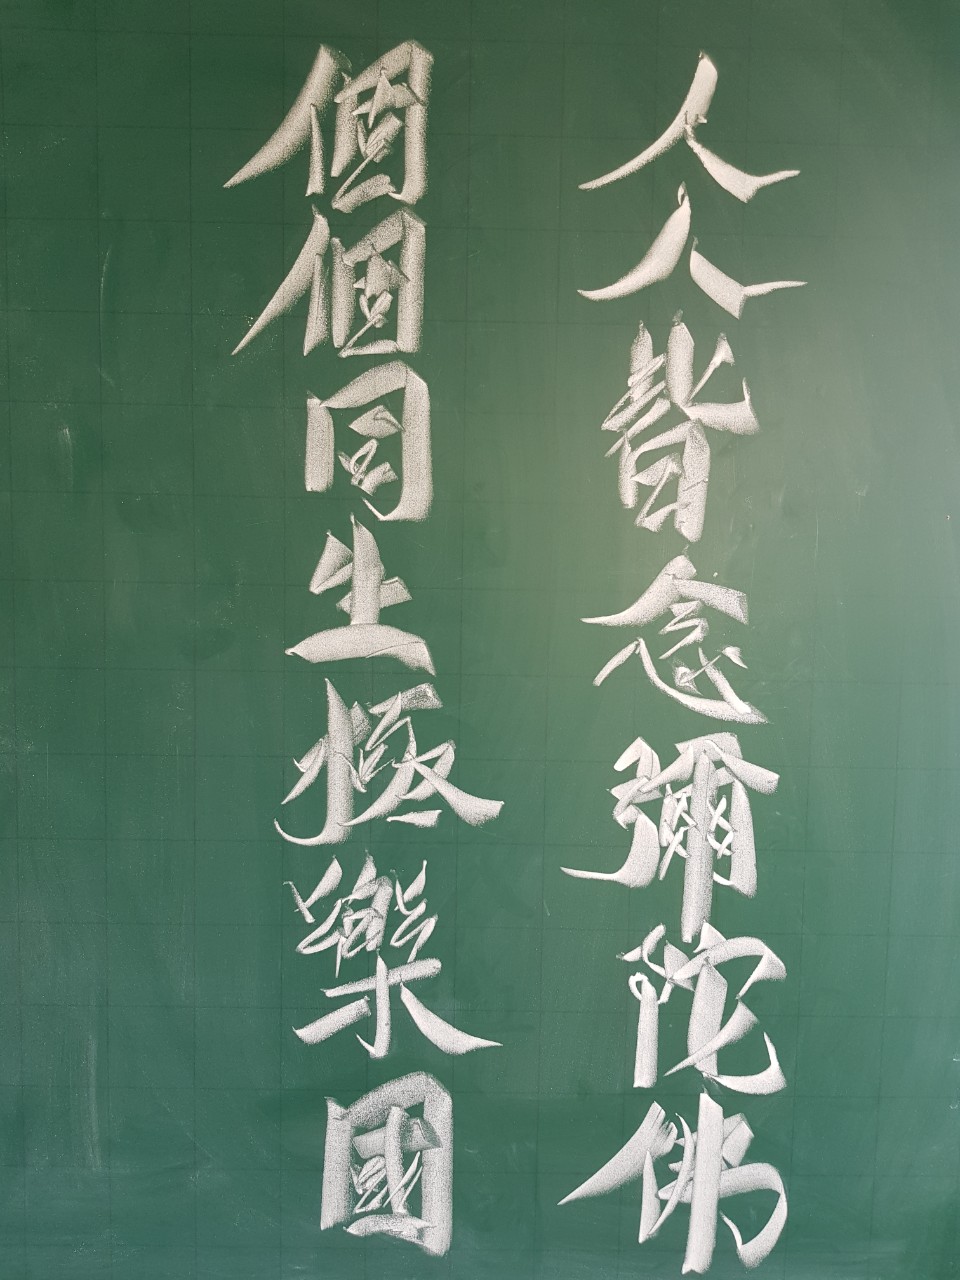 人人皆念彌陀佛
個個同生極樂國